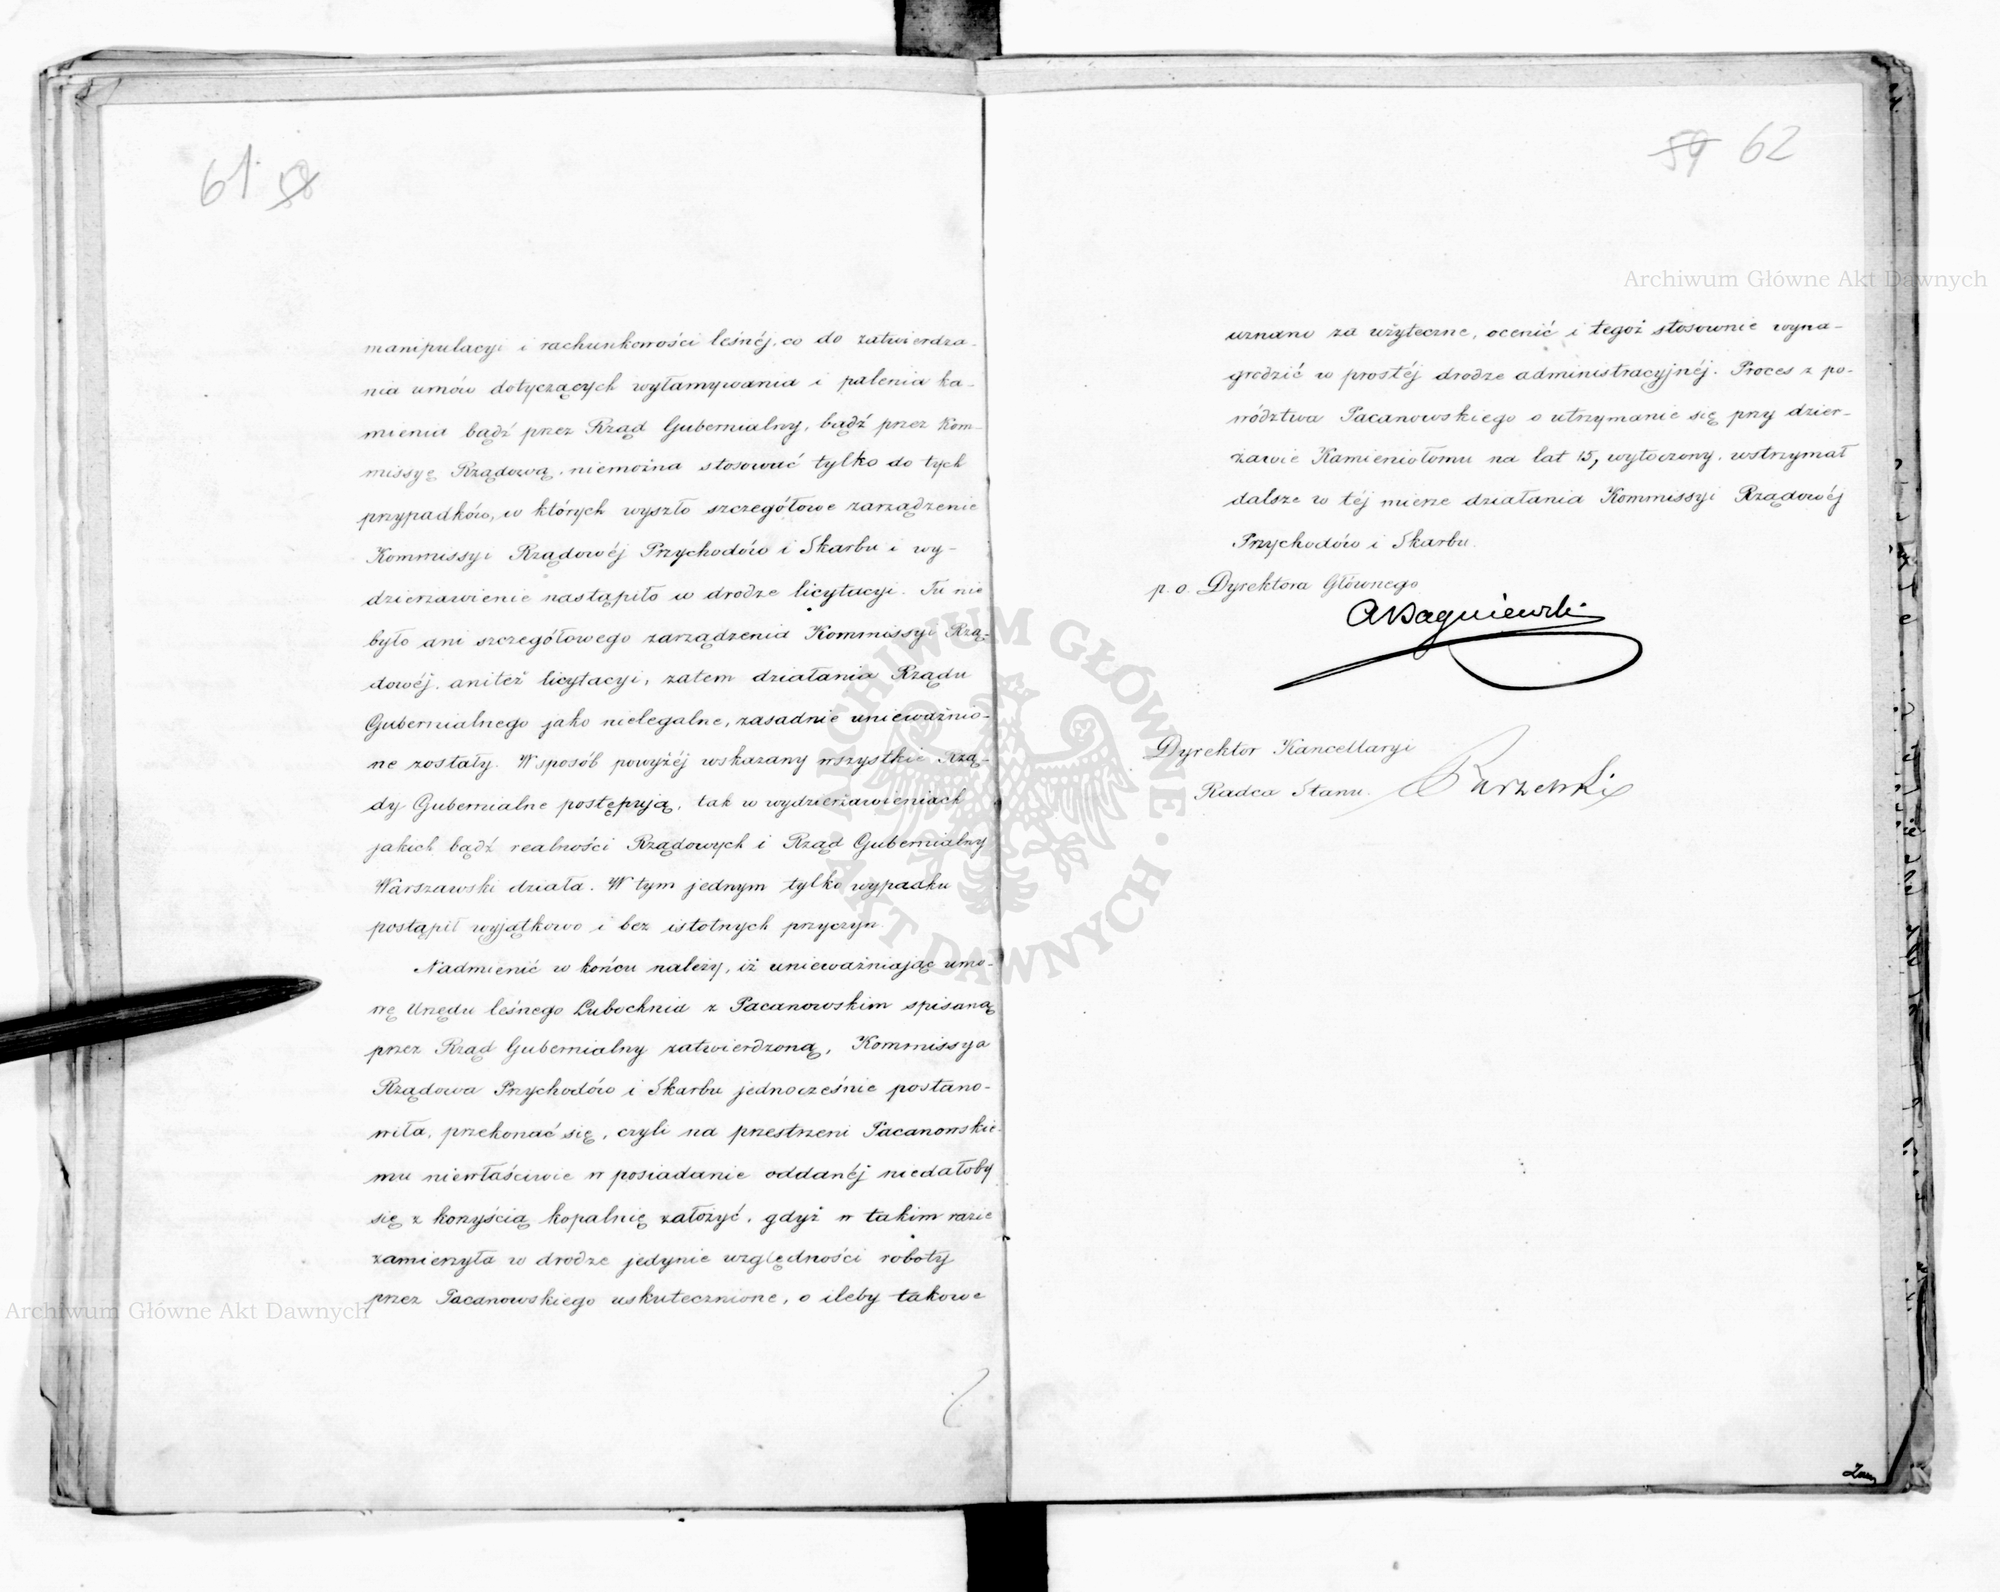 61 58
manipulacyi i rachunkowości leśnéj, co do zatwierdza-
nia umów dotyczących wyłamywania i palenia ka-
mienia bądź przez Rząd Gubernialny, bądź przez Kom-
missyę Rządową, niemożna stosować tylko do tych
przypadków, w których wyszło szczegółowe zarządzenie
Kommissyi Rządowéj Przychodów i Skarbu i wy-
dzierżawienie nastąpiło w drodze licytacyi. Tu nie
było ani szczegółowego zarządzenia Kommissyi Rzą-
dowéj, aniteż licytacyi, zatem działania Rządu
Gubernialnego jako nielegalne, zasadnie unieważnio-
ne zostały. W sposób powyżéj wskazany wszystkie Rzą-
dy Gubernialne postępują, tak w wydzierżawieniach
jakich bądź realności Rządowych i Rząd Gubernialny
Warszawski działa. W tym jednym tylko wypadku
postąpił wyjątkowo i bez istotnych przyczyn.
Nadmienić w końcu należy, iż unieważniając umo-
wę Urzędu leśnego Lubochnia z Pacanowskim spisaną
przez Rząd Gubernialny zatwierdzoną, Kommissya
Rządowa Przychodów i Skarbu jednocześnie postano-
wiła, przekonać się, czyli na przestrzeni Pacanowskie-
mu niewłaściwie w posiadanie oddanéj niedałoby
się z korzyścią kopalnię założyć, gdyż w takim razie
zamierzyła w drodze jedynie względności roboty
przez Pacanowskiego uskutecznione, o ileby takowe
59 62
uznano za użyteczne, ocenić i tegoż stosownie wyna-
grodzić w prostéj drodze administracyjnéj. Proces z po-
wództwa Pacanowskiego o utrzymanie się przy dzier-
żawie Kamieniołomu na lat 15, wytoczony, wstrzymał
dalsze w téj mierze działania Kommissyi Rządowéj
Przychodów i Skarbu.
p. o. Dyrektora Głównego
ABagniewski
Dyrektor Kancellaryi
Radca Stanu
Archiwum Główne Akt Dawnych
Archiwum Główne Akt Dawnych
ARCHIWUM GŁÓWNE AKT DAWNYCH